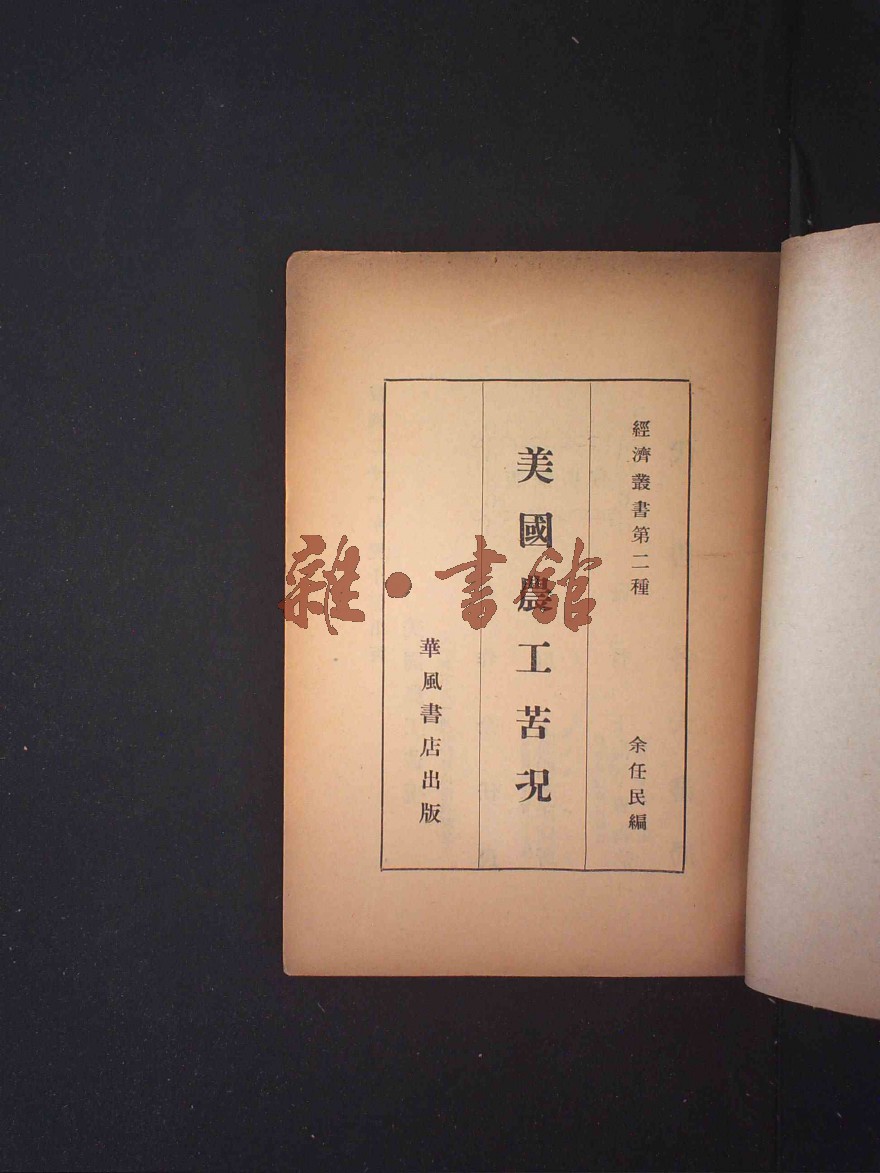 經濟叢書第二種
余任民編
美國農工苦況
華風書店出版
雜·書館